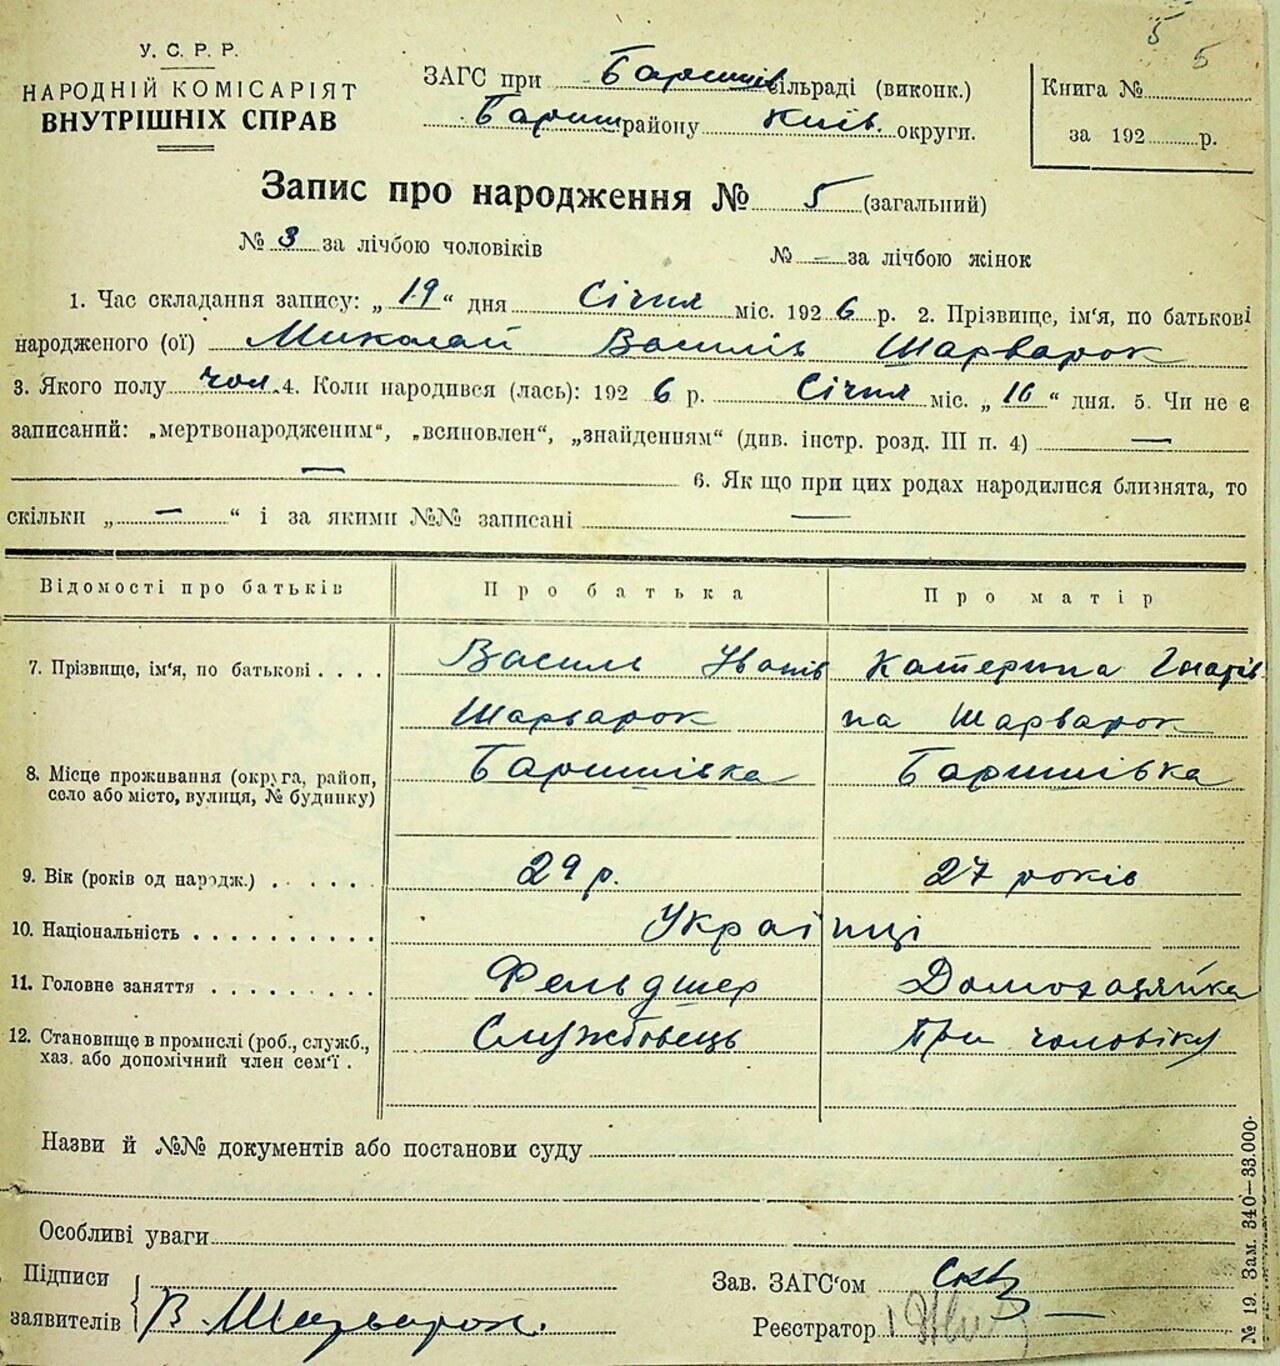 5
5
У. С. Р. Р.
НАРОДНІЙ КОМІСАРІЯТ
ВНУТРІШНІХ СПРАВ
ЗАГС при Баришів сільраді (виконк.)
Бариш району Київ. округи.
Книга №
за 192 р.
Запис про народження № 5 (загальний)
№ 3 за лічбою чоловіків № — за лічбою жінок
1. Час складання запису: „19“ дня Січня міс. 1926 р. 2. Прізвище, ім‘я, по батькові
народженого (ої) Миколай Василів Шарварок
3. Якого полу чол. 4. Коли народився (лась): 1926 р. Січня міс. „16“ дня. 5. Чи не є
записаний: „мертвонародженим“, „всиновлен“, „знайденням“ (див. інстр. розд. III п. 4) —
— 6. Як що при цих родах народилися близнята, то
скільки „—“ і за якими №№ записані —
Відомості про батьків Про батька Про матір
7. Прізвище, ім‘я, по батькові . . . . Василь Іванів Катерина Гнатів
Шарварок на Шарварок
8. Місце проживання (округа, район, Баришівка Баришівка
село або місто, вулиця, № будинку)
9. Вік (років од народж.) . . . . . 29 р. 27 років
10. Національність . . . . . . . . . . Українці
11. Головне заняття . . . . . . . . . Фельдшер Домохазяйка
12. Становище в промислі (роб., служб., Службовець При чоловіку
хаз. або допомічний член сем‘ї .
Назви й №№ документів або постанови суду
Особливі уваги
Підписи
заявителів В. Шарварок.
Зав. ЗАГС‘ом
Реєстратор
№ 19. Зам. 340—33.000.